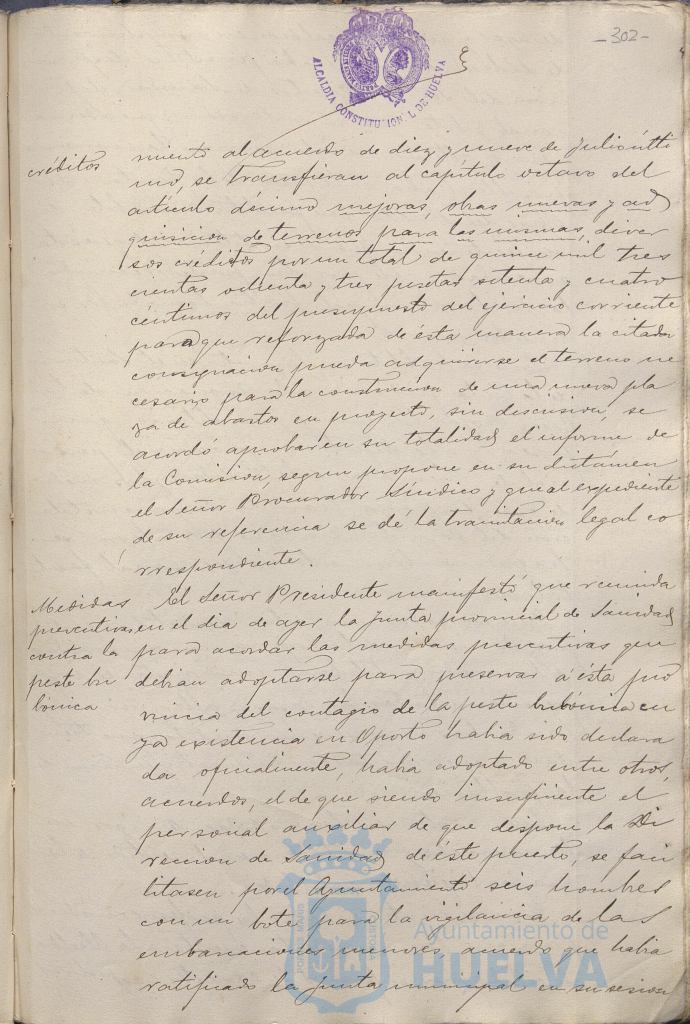 -302-
ALCALDIA CONSTITUCIONAL DE HUELVA
créditos
miento al acuerdo de diez y nueve de Julio últi
mo, se transfieran al capítulo octavo del
artículo décimo mejoras, obras nuevas y ad
quisicion de terrenos para las mismas, diver
sos créditos por un total de quince mil tres
cientas ochenta y tres pesetas setenta y cuatro
céntimos del presupuesto del ejercicio corriente
para que reforzada de ésta manera la citada
consignacion pueda adquirirse el terreno ne
cesario para la construccion de una nueva pla
za de abastos en proyecto, sin discusion, se
acordó aprobar en su totalidad el informe de
la Comision, segun propone en su dictámen
el Señor Procurador Síndico y que al expediente
de su referencia se dé la tramitacion legal co
rrespondiente.
Medidas
preventivas
contra la
peste bu
bónica
El Señor Presidente manifestó que reunida
en el dia de ayer la Junta provincial de Sanidad
para acordar las medidas preventivas que
debian adoptarse para preservar á ésta pro
vincia del contagio de la peste bubónica cu
ya existencia en Oporto habia sido declara
da oficialmente, habia adoptado entre otros,
acuerdos, el de que siendo insuficiente el
personal auxiliar de que dispone la Di
reccion de Sanidad de éste puerto, se faci
litasen por el Ayuntamiento seis hombres
con un bote para la vigilancia de las
embarcaciones menores, acuerdo que habia
ratificado la Junta municipal en su sesion
Ayuntamiento de
HUELVA